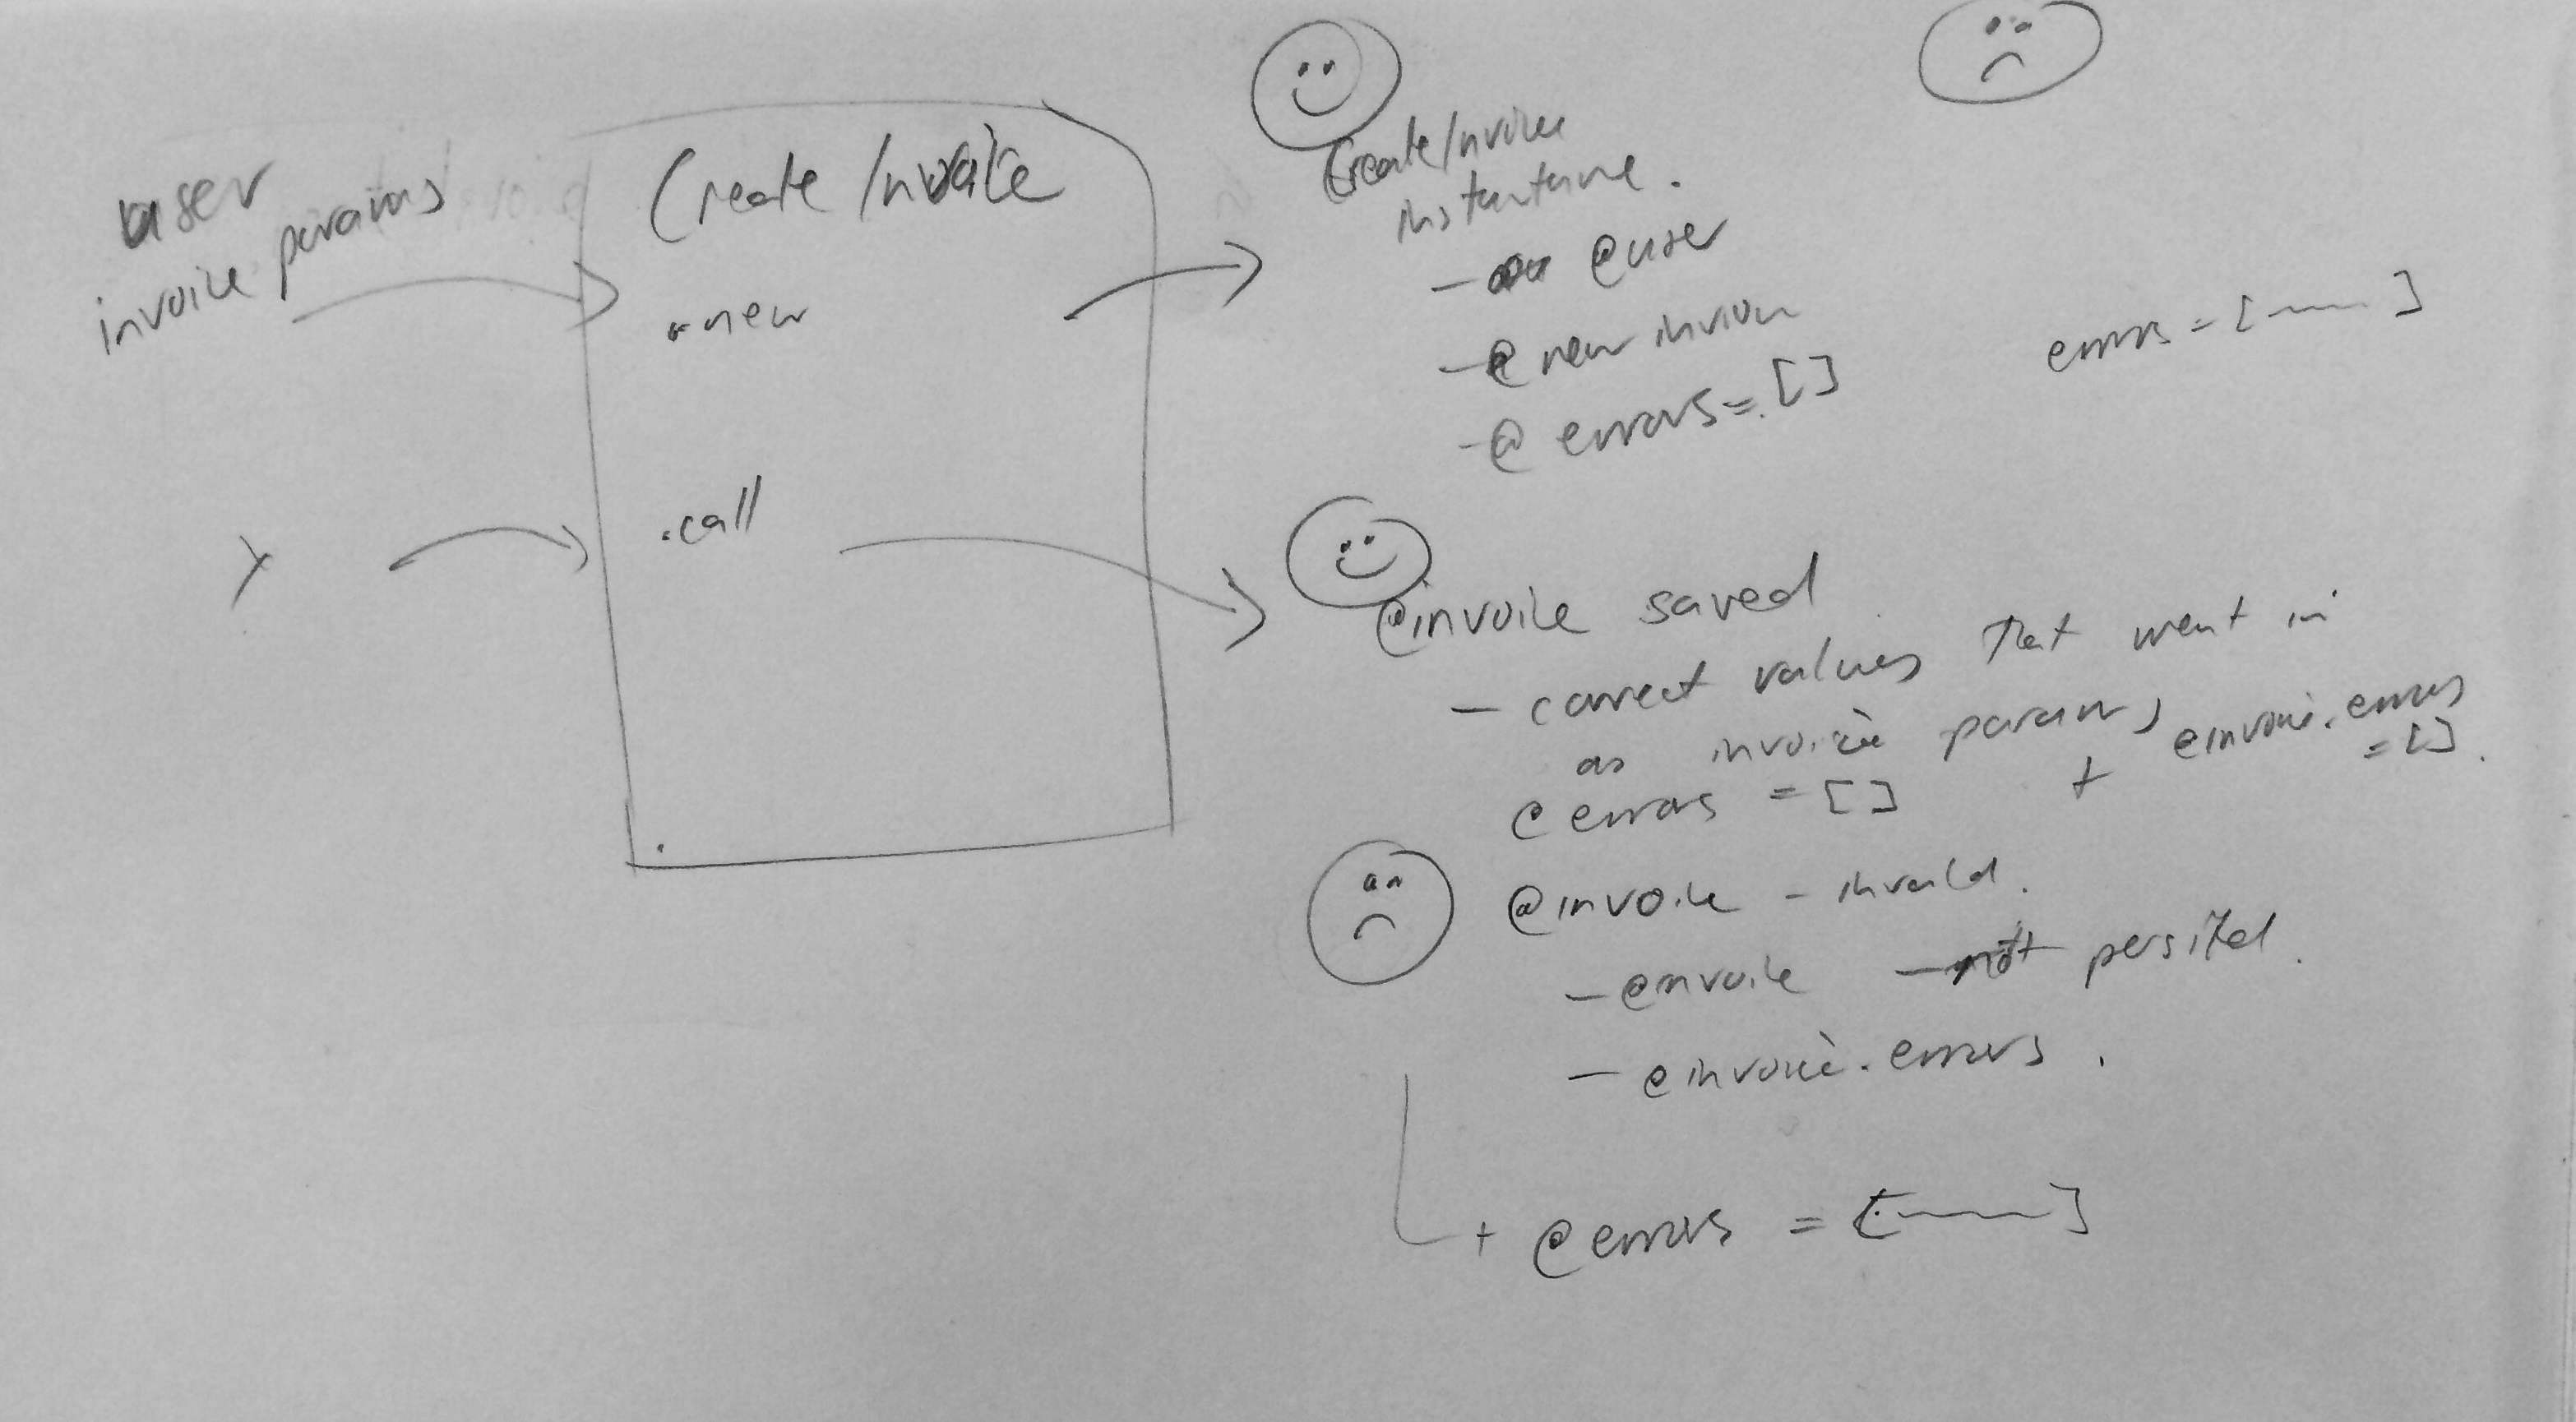 user
invoice params
CreateInvoice
.new
.call
CreateInvoice
instantiate.
- @user
- @ new invoice
- @ errors = []
errors = [ ]
@invoice saved
- correct values that went in
as invoice params
@errors = [ ] + @invoice.errors
= [ ].
@invoice - invalid.
- @invoice - not persisted.
- @invoice.errors.
+ @errors = [ ]